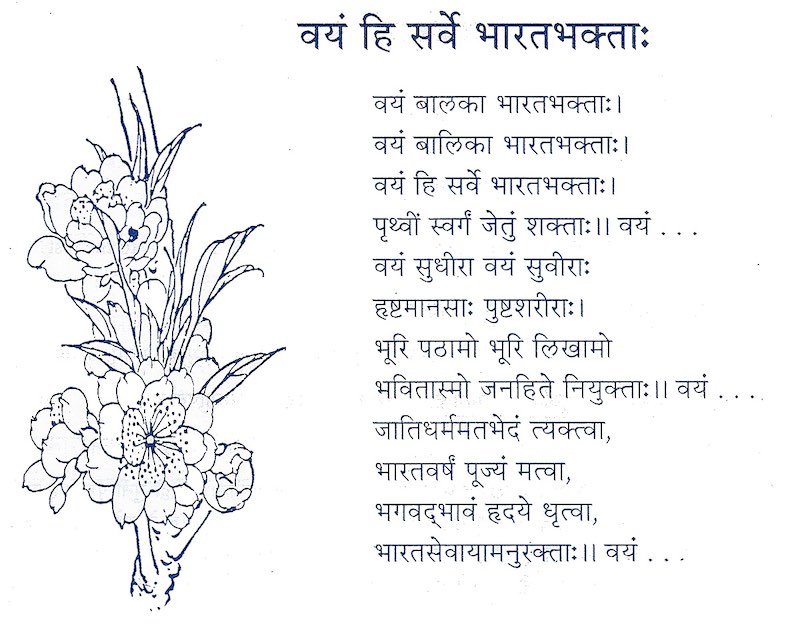 वयं हि सर्वे भारतभक्ताः
वयं बालका भारतभक्ताः।
वयं बालिका भारतभक्ताः।
वयं हि सर्वे भारतभक्ताः।
पृथ्वीं स्वर्गं जेतुं शक्ताः।। वयं . . .
वयं सुधीरा वयं सुवीराः
हृष्टमानसाः पुष्टशरीराः।
भूरि पठामो भूरि लिखामो
भवितास्मो जनहिते नियुक्ताः।। वयं . . . .
जातिधर्ममतभेदं त्यक्त्वा,
भारतवर्षं पूज्यं मत्वा,
भगवद्‌भावं हृदये धृत्वा,
भारतसेवायामनुरक्ताः।। वयं . . .